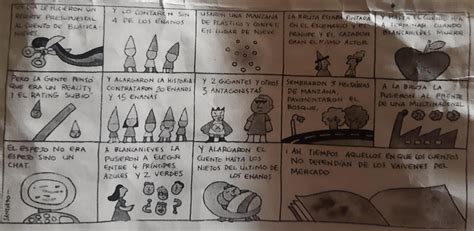 RECORTE PRESUPUESTAL
AL CUENTO DE BLANCA
NIEVES
Y LO CONTARON SIN
4 DE LOS ENANOS
USARON UNA MANZANA
DE PLASTICO Y CONFETI
EN LUGAR DE NIEVE
LA BRUJA ESTABA PINTADA
EN EL ESCENARIO Y EL
PRINCIPE Y EL CAZADOR
ERAN EL MISMO ACTOR
Y HASTA EL CUENTO
CUANDO
BLANCANIEVES MUERE
PERO LA GENTE PENSÓ
QUE ERA UN REALITY
Y EL RATING SUBIÓ
Y ALARGARON LA HISTORIA
CONTRATARON 20 ENANOS
Y 15 ENANAS
Y 2 GIGANTES Y OTROS
3 ANTAGONISTAS
SEMBRARON 3 HECTAREAS
DE MANZANA,
PAVIMENTARON EL
BOSQUE,
A LA BRUJA LA
PUSIERON AL FRENTE
DE UNA MULTINACIONAL
EL ESPEJO NO ERA
ESPEJO SINO UN
CHAT.
A BLANCANIEVES LA
PUSIERON A ELEGIR
ENTRE 4 PRÍNCIPES
AZULES Y 2 VERDES
Y ALARGARON EL
CUENTO HASTA LOS
NIETOS DEL ULTIMO DE
LOS ENANOS
¡AH TIEMPOS AQUELLOS EN QUE LOS CUENTOS
NO DEPENDÍAN DE LOS VAIVENES DEL
MERCADO